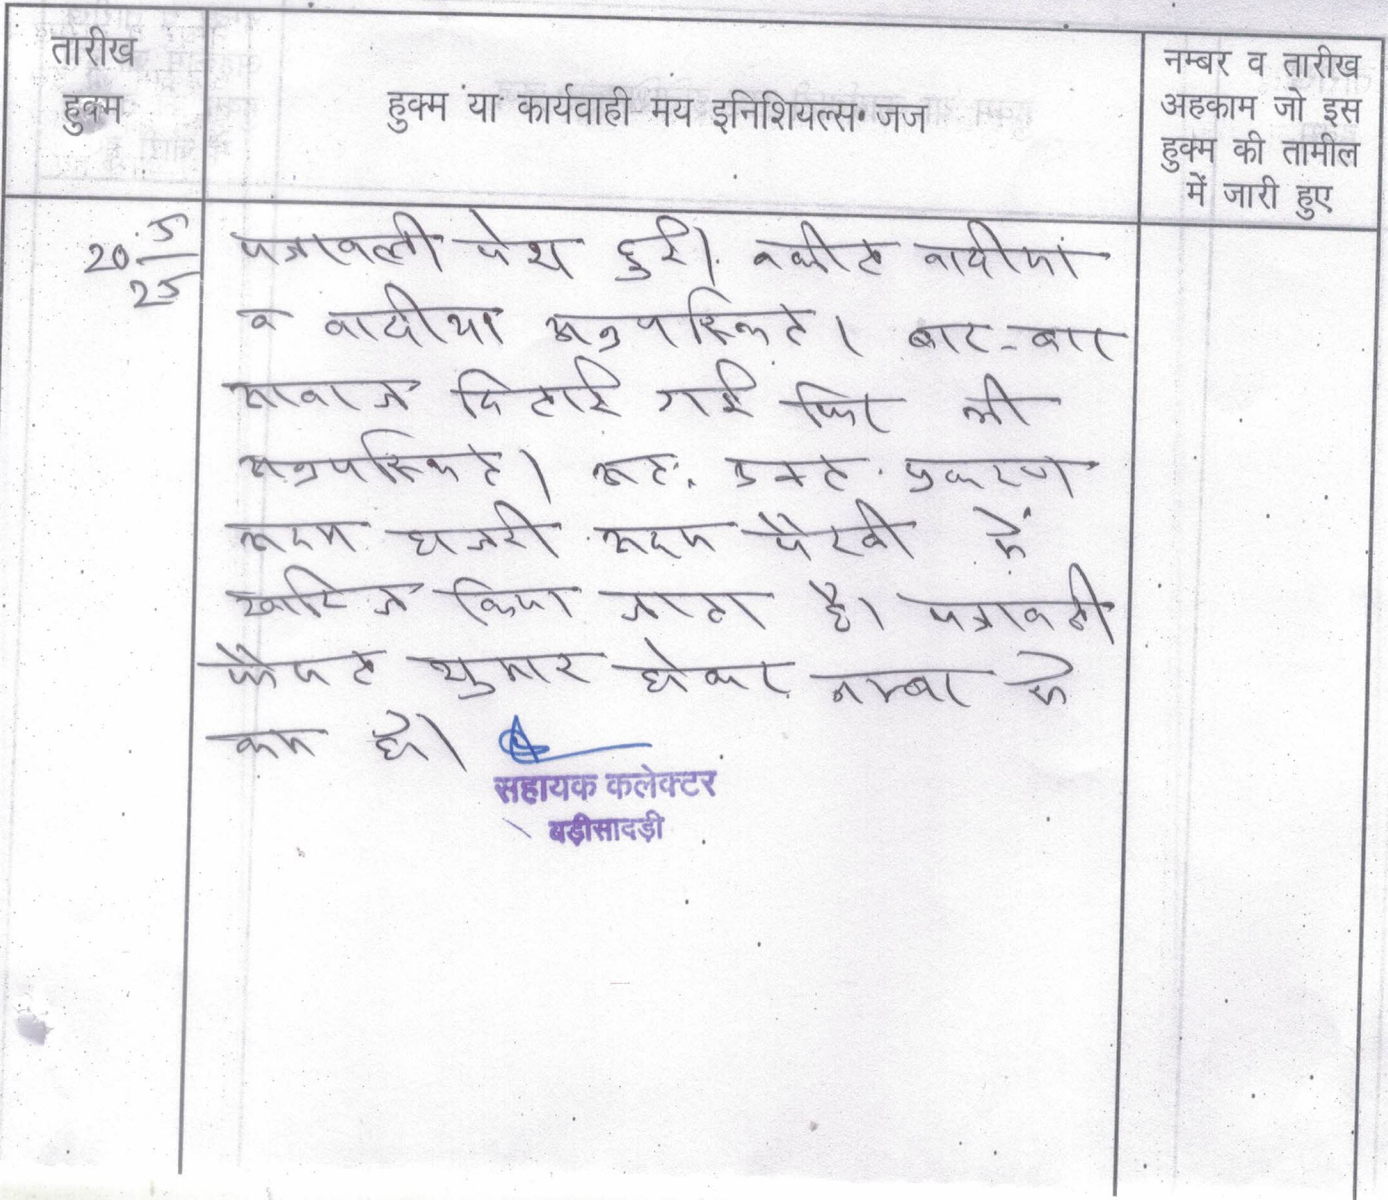 तारीख
हुक्म
हुक्म या कार्यवाही मय इनिशियल्स जज
नम्बर व तारीख
अहकाम जो इस
हुक्म की तामील
में जारी हुए
20.5
25
पत्रावली पेश हुई। वकील वादीया
व वादीया अनुपस्थित। बार-बार
आवाज दिलाई गई फिर भी
अनुपस्थित। अतः उक्त प्रकरण
अदम हाजरी अदम पैरवी में
खारिज किया जाता है। पत्रावली
फैसल शुमार होकर नम्बर से
कम हो।
सहायक कलेक्टर
बड़ीसादड़ी